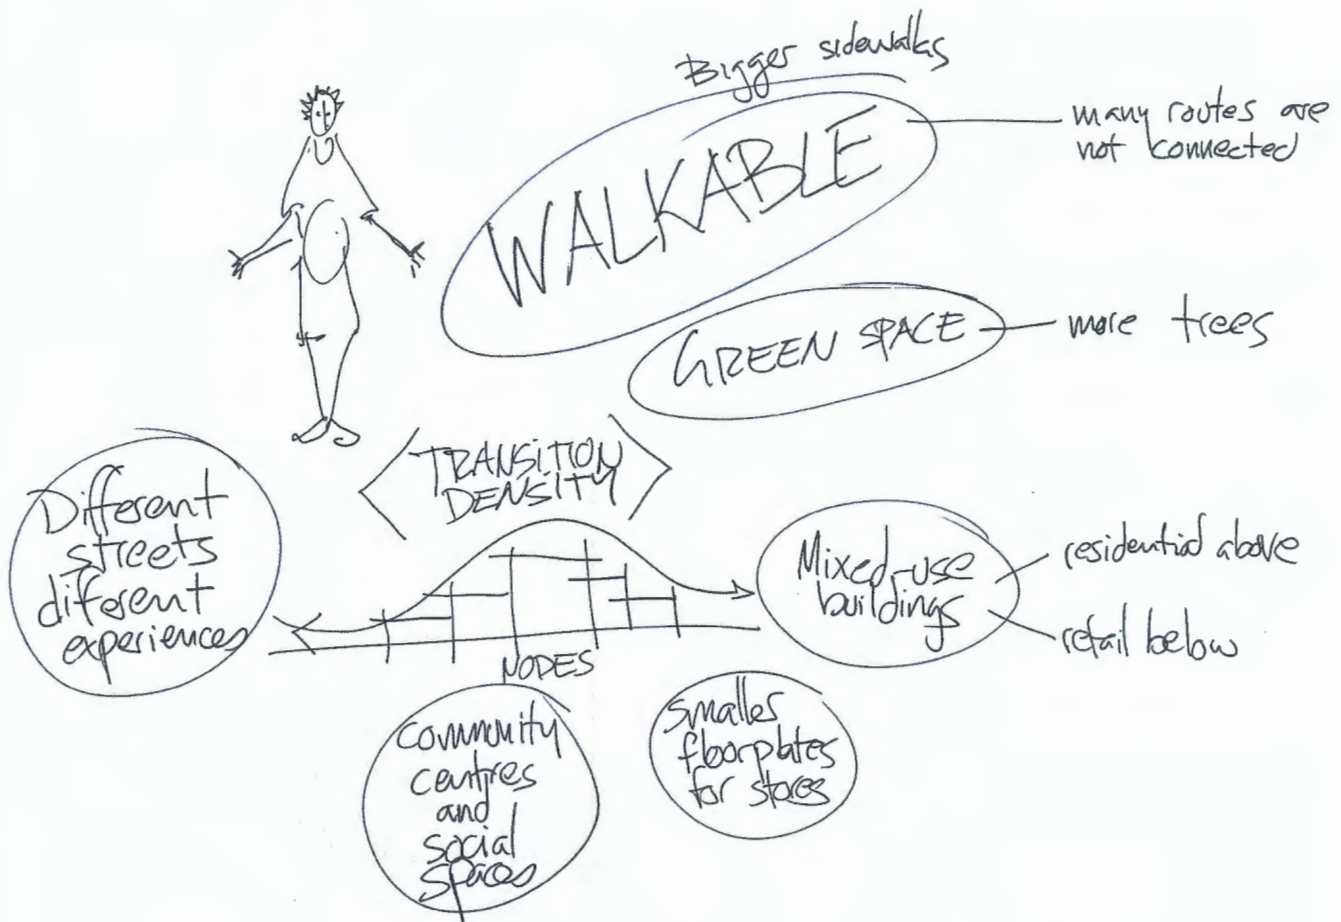 Bigger sidewalks
WALKABLE
many routes are
not connected
GREEN SPACE
more trees
TRANSITION
DENSITY
Different
streets
different
experiences
Mixed-use
buildings
residential above
retail below
NODES
Community
centres
and
social
spaces
smaller
floorplates
for stores